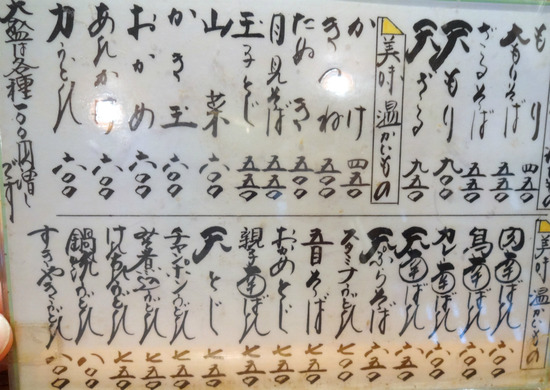 もり 四五〇
大もりそば 五五〇
ざるそば 五五〇
天もり 九〇〇
天ざる 九五〇
美味 温かいもの
かけ 四五〇
きつね 五〇〇
たぬき 五〇〇
月見そば 五五〇
玉子とじ 五五〇
山菜 六〇〇
かき玉 六〇〇
おかめ 六〇〇
力うどん 六〇〇
大盛は各種一〇〇円増しです
美味 温かいもの
肉南ばん 六〇〇
鳥南ばん 六〇〇
カレー南ばん 六〇〇
天南ばん 六五〇
天ぷらそば 六五〇
スタミナうどん 七〇〇
五目そば 七五〇
おかめとじ 七五〇
親子南ばん 七五〇
天とじ 七〇〇
チャンポンうどん 七五〇
煮込うどん 七五〇
けんちんうどん 七五〇
鍋焼うどん 八〇〇
すきやきうどん 八〇〇